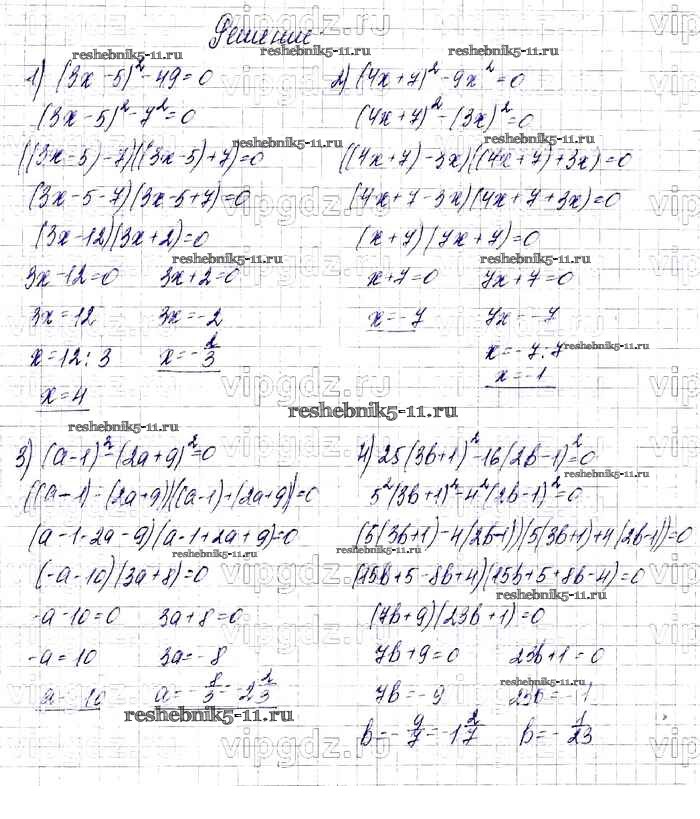 Решение
1) (3x-5)²-49=0
(3x-5)²-7²=0
((3x-5)-7)((3x-5)+7)=0
(3x-5-7)(3x-5+7)=0
(3x-12)(3x+2)=0
3x-12=0 3x+2=0
3x=12 3x=-2
x=12:3 x=-2/3
x=4
2) (4x+7)²-9x²=0
(4x+7)²-(3x)²=0
((4x+7)-3x)((4x+7)+3x)=0
(4x+7-3x)(4x+7+3x)=0
(x+7)(7x+7)=0
x+7=0 7x+7=0
x=-7 7x=-7
x=-7:7
x=-1
reshebnik5-11.ru
3) (a-1)²-(2a+9)²=0
((a-1)-(2a+9))((a-1)+(2a+9))=0
(a-1-2a-9)(a-1+2a+9)=0
(-a-10)(3a+8)=0
-a-10=0 3a+8=0
-a=10 3a=-8
a=-10 a=-8/3=-2 2/3
4) 25(3b+1)²-16(2b-1)²=0
5²(3b+1)²-4²(2b-1)²=0
(5(3b+1)-4(2b-1))(5(3b+1)+4(2b-1))=0
(15b+5-8b+4)(15b+5+8b-4)=0
(7b+9)(23b+1)=0
7b+9=0 23b+1=0
7b=-9 23b=-1
b=-9/7=-1 2/7 b=-1/23
reshebnik5-11.ru
vipgdz.ru